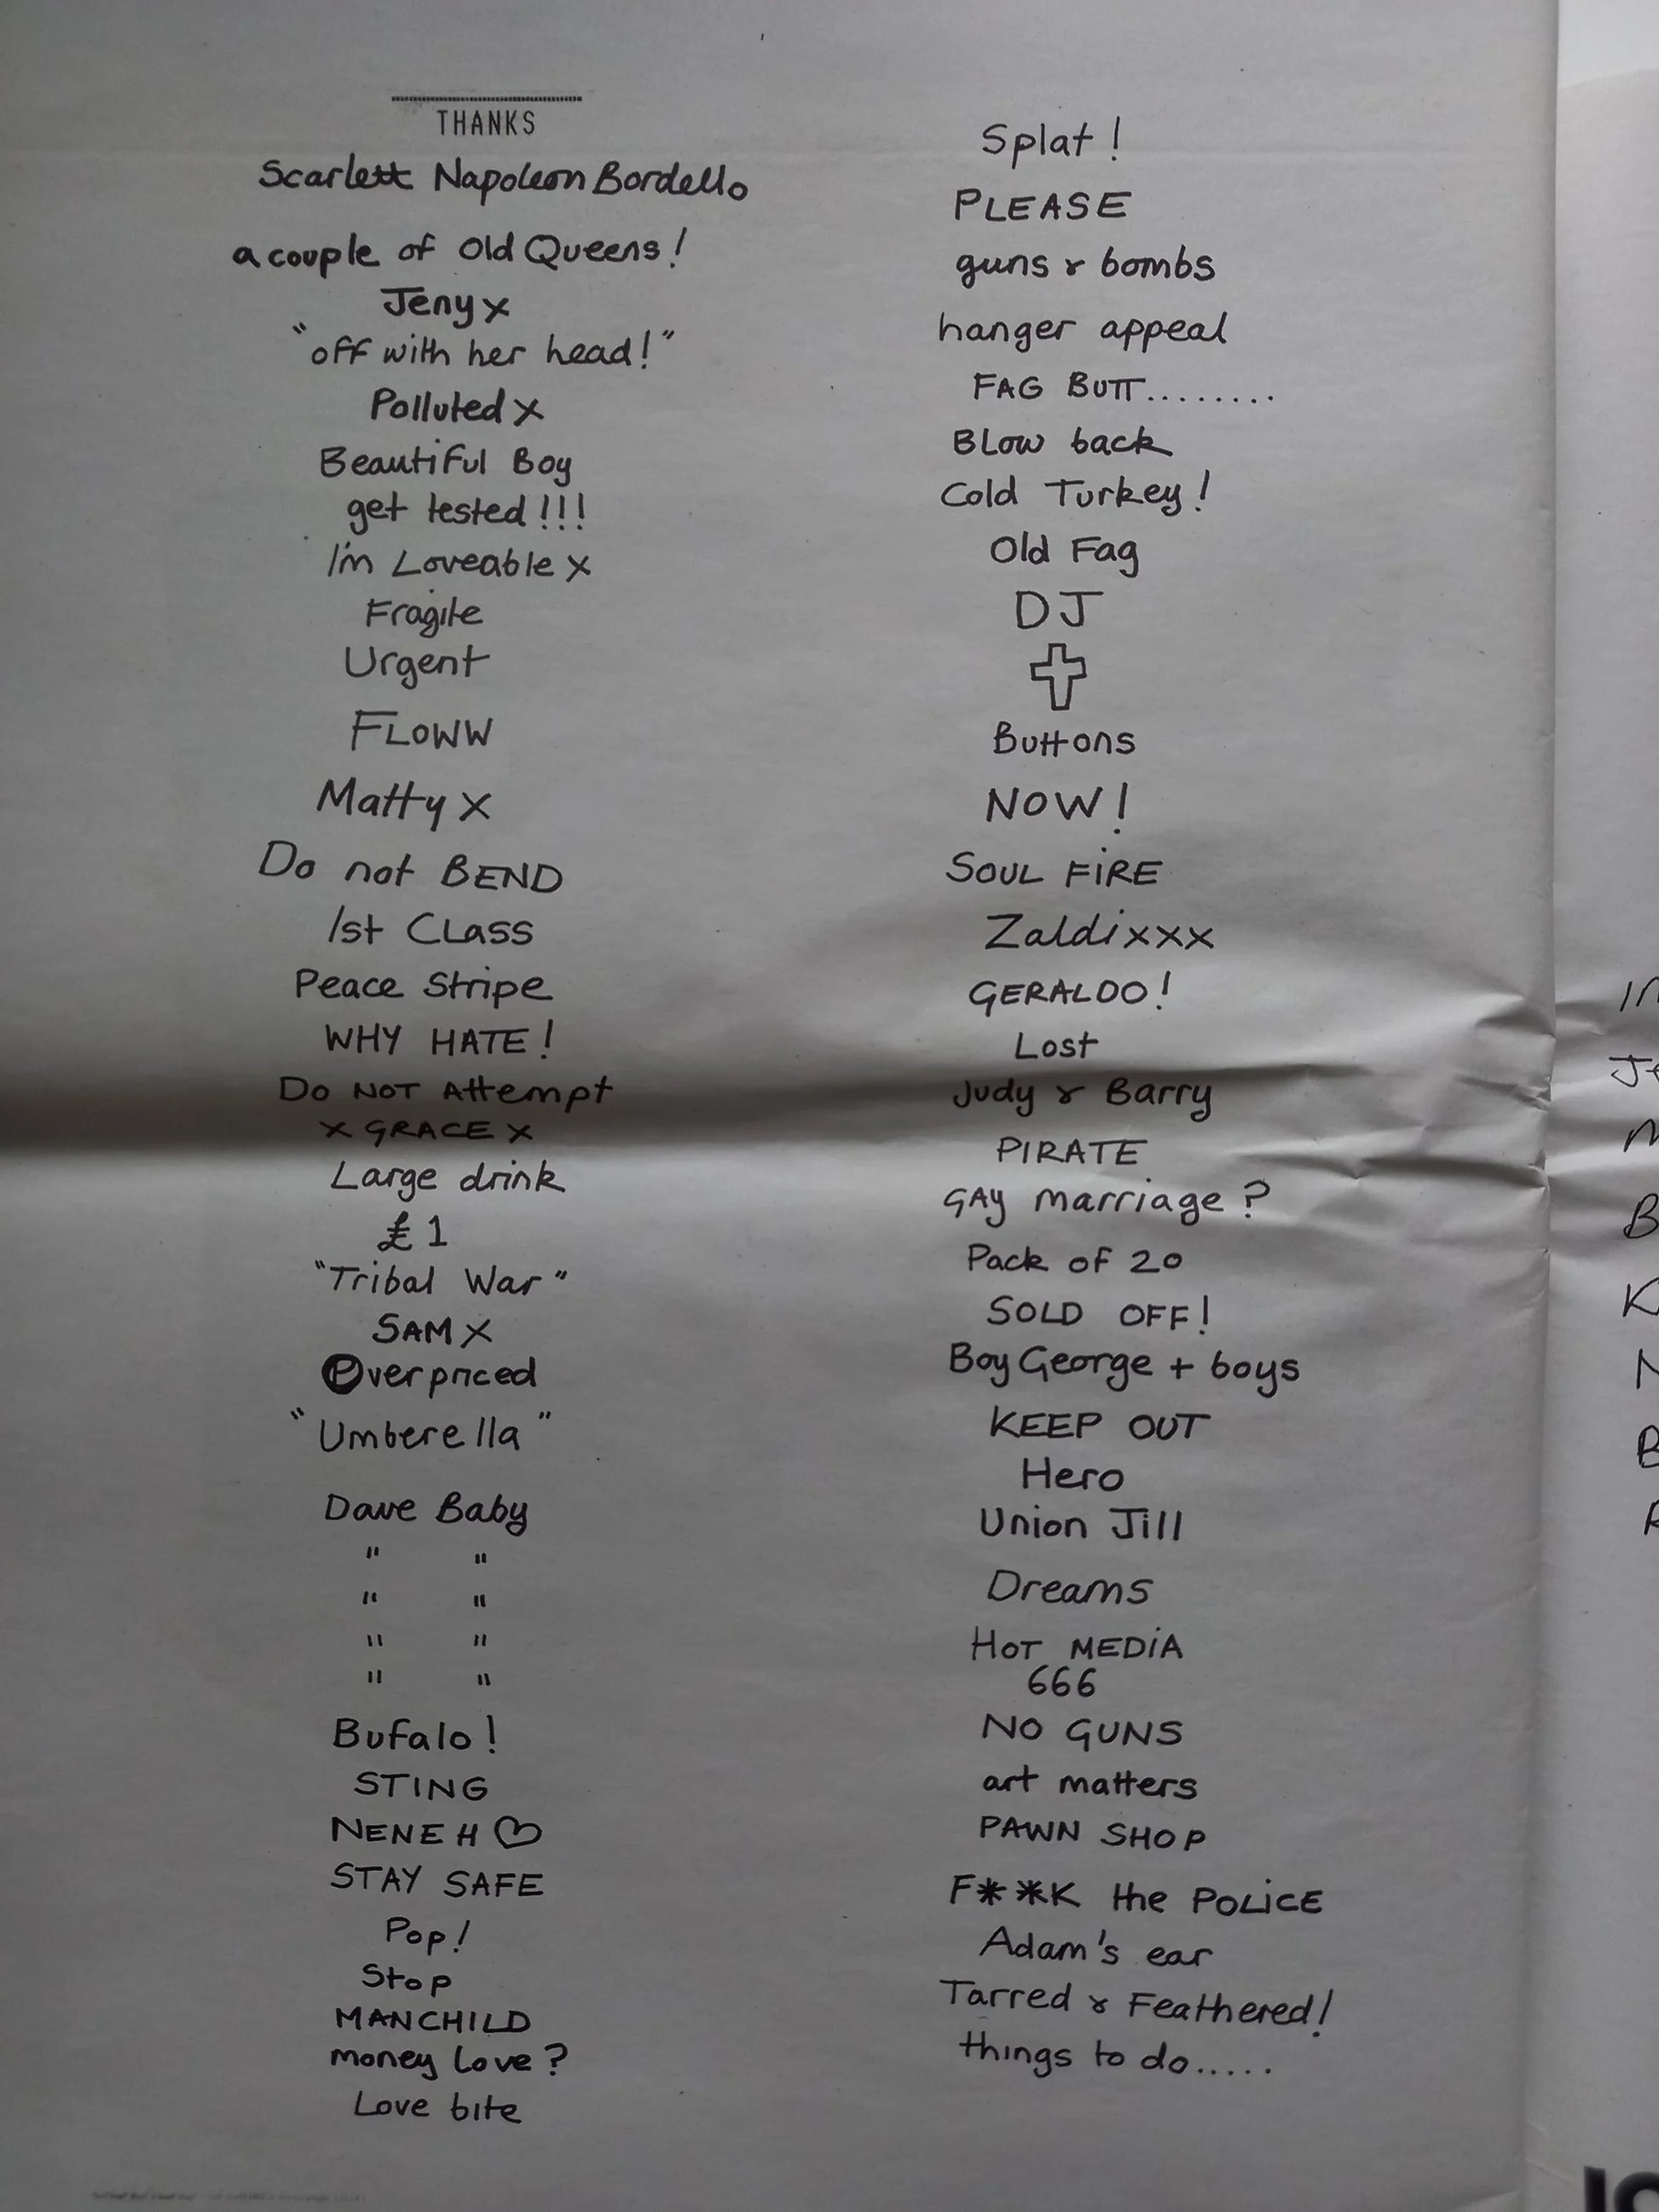 THANKS
Scarlett Napoleon Bordello
a couple of Old Queens!
Jeny x
"off with her head!"
Polluted x
Beautiful Boy
get tested!!!
I'm Loveable x
Fragile
Urgent
FLOWW
Matty x
Do not BEND
1st CLASS
Peace Stripe
WHY HATE!
DO NOT Attempt
x GRACE x
Large drink
£1
"Tribal War"
SAM X
Overpriced
"Umberella"
Dave Baby
" "
" "
" "
" "
Bufalo!
STING
NENEH ♡
STAY SAFE
Pop!
Stop
MANCHILD
money love?
Love bite
Splat!
PLEASE
guns & bombs
hanger appeal
FAG BUTT........
BLOW back
Cold Turkey!
Old Fag
DJ
Buttons
NOW!
SOUL FiRE
Zaldi xxx
GERALDO!
Lost
Judy & Barry
PIRATE
GAY marriage?
Pack of 20
SOLD OFF!
Boy George + boys
KEEP OUT
Hero
Union Jill
Dreams
HOT MEDiA
666
NO GUNS
art matters
PAWN SHOP
F**K the POLiCE
Adam's ear
Tarred & Feathered!
things to do.....